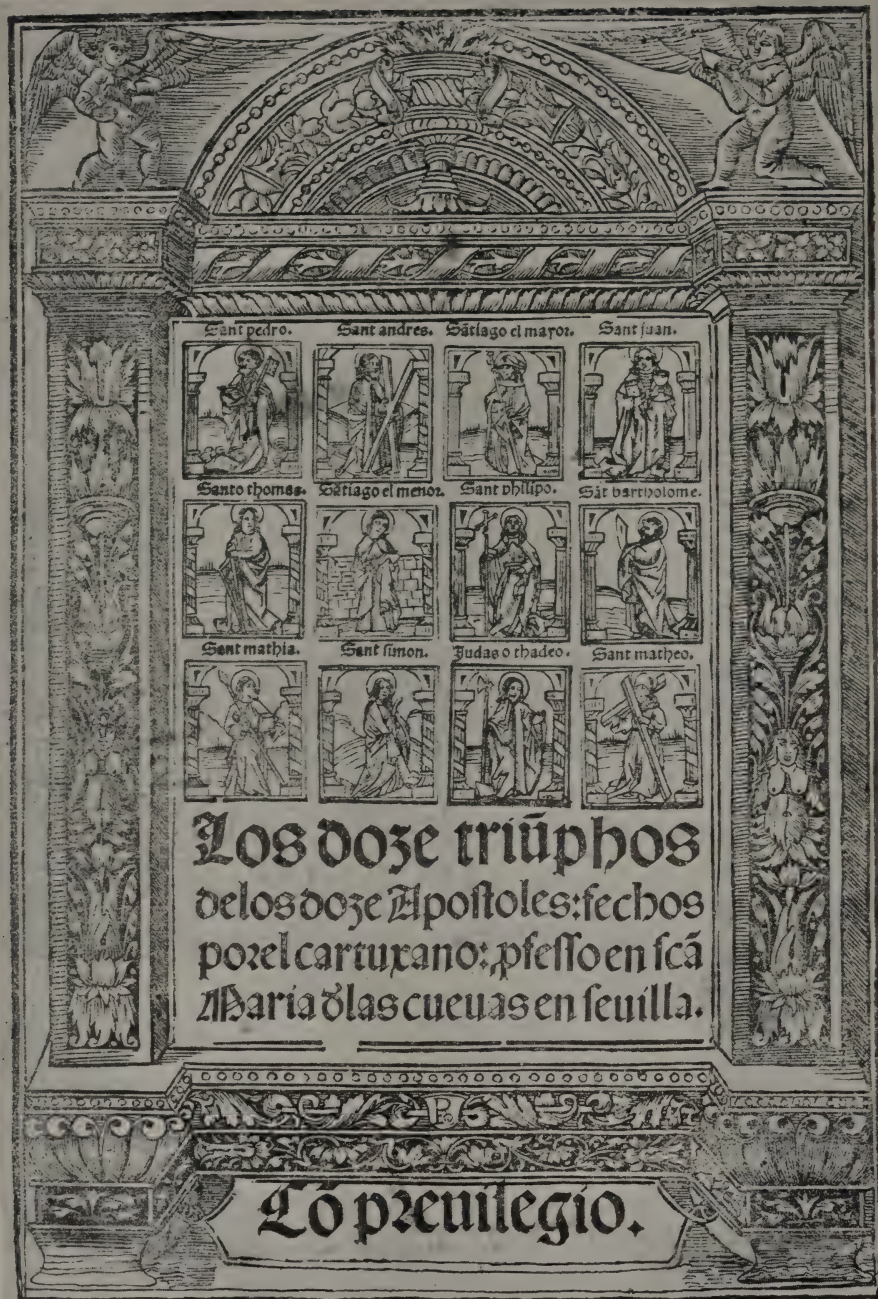 Sant pedro. Sant andres. Sãtiago el mayor. Sant juan.
Santo thomas. Sãtiago el menor. Sant philipo. Sãt bartholome.
Sant mathia. Sant simon. Judas o thadeo. Sant matheo.
Los doze triũphos
delos doze Apostoles: fechos
por el cartuxano: ꝓfesso en scã
Maria đlas cueuas en seuilla.
Cõ preuilegio.